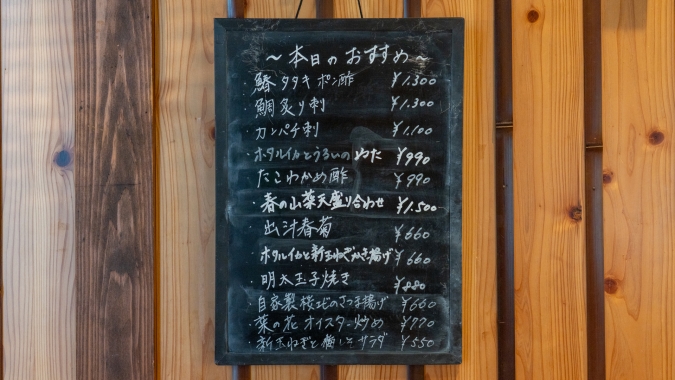 ～本日のおすすめ～
・鰆タタキ ポン酢 ¥1.300
・鯛炙り刺 ¥1.300
・カンパチ刺 ¥1.100
・ホタルイカとうるいのぬた ¥990
・たこわかめ酢 ¥990
・春の山菜天盛り合わせ ¥1.500
・出汁春菊 ¥660
・ホタルイカと新玉ねぎかき揚げ ¥660
・明太玉子焼き ¥880
・自家製桜エビのさつま揚げ ¥660
・菜の花オイスター炒め ¥770
・新玉ねぎと梅 サラダ ¥550